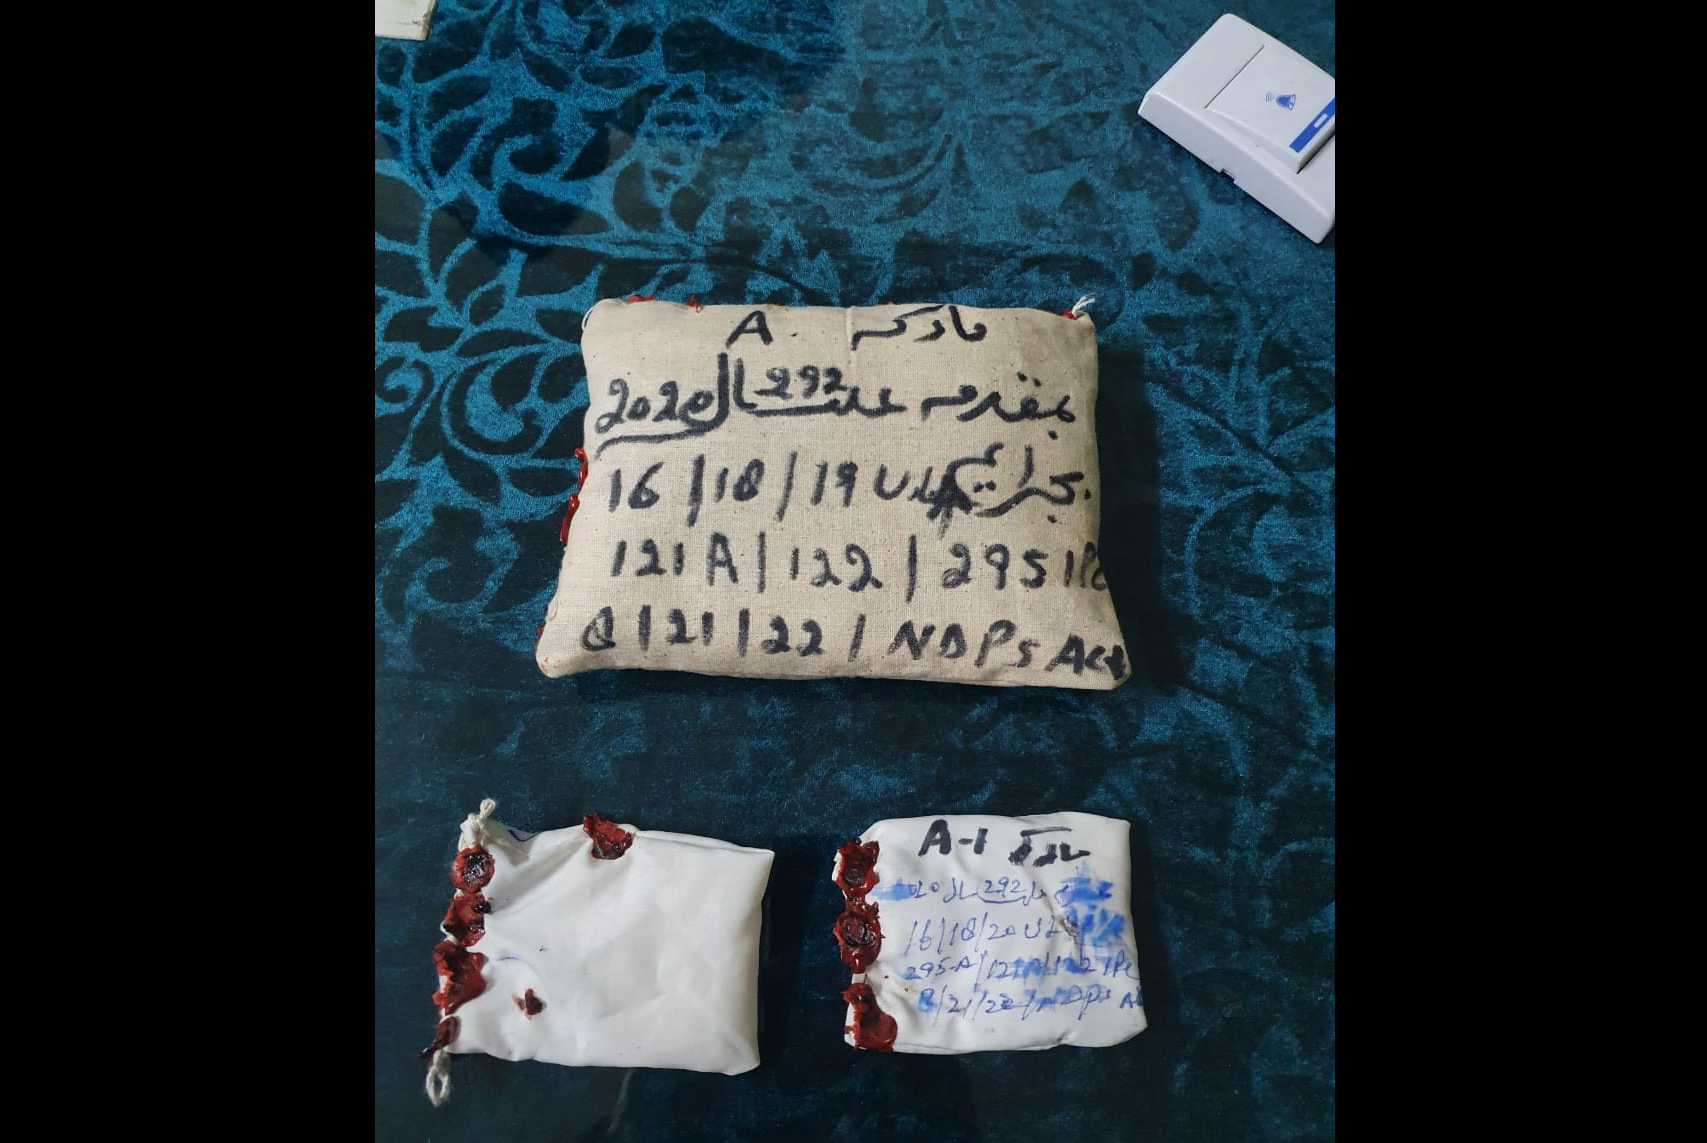 مارکہ A
بمقدمہ علت 292 سال 2020
بجرائم 16/18/19 ULA
121A/122/295 IPC
8/21/22/NDPS Act
A-1 مارکہ
علت 292 سال
16/18/20 UL
295-A/121A/122 IPC
8/21/22/NDPS A